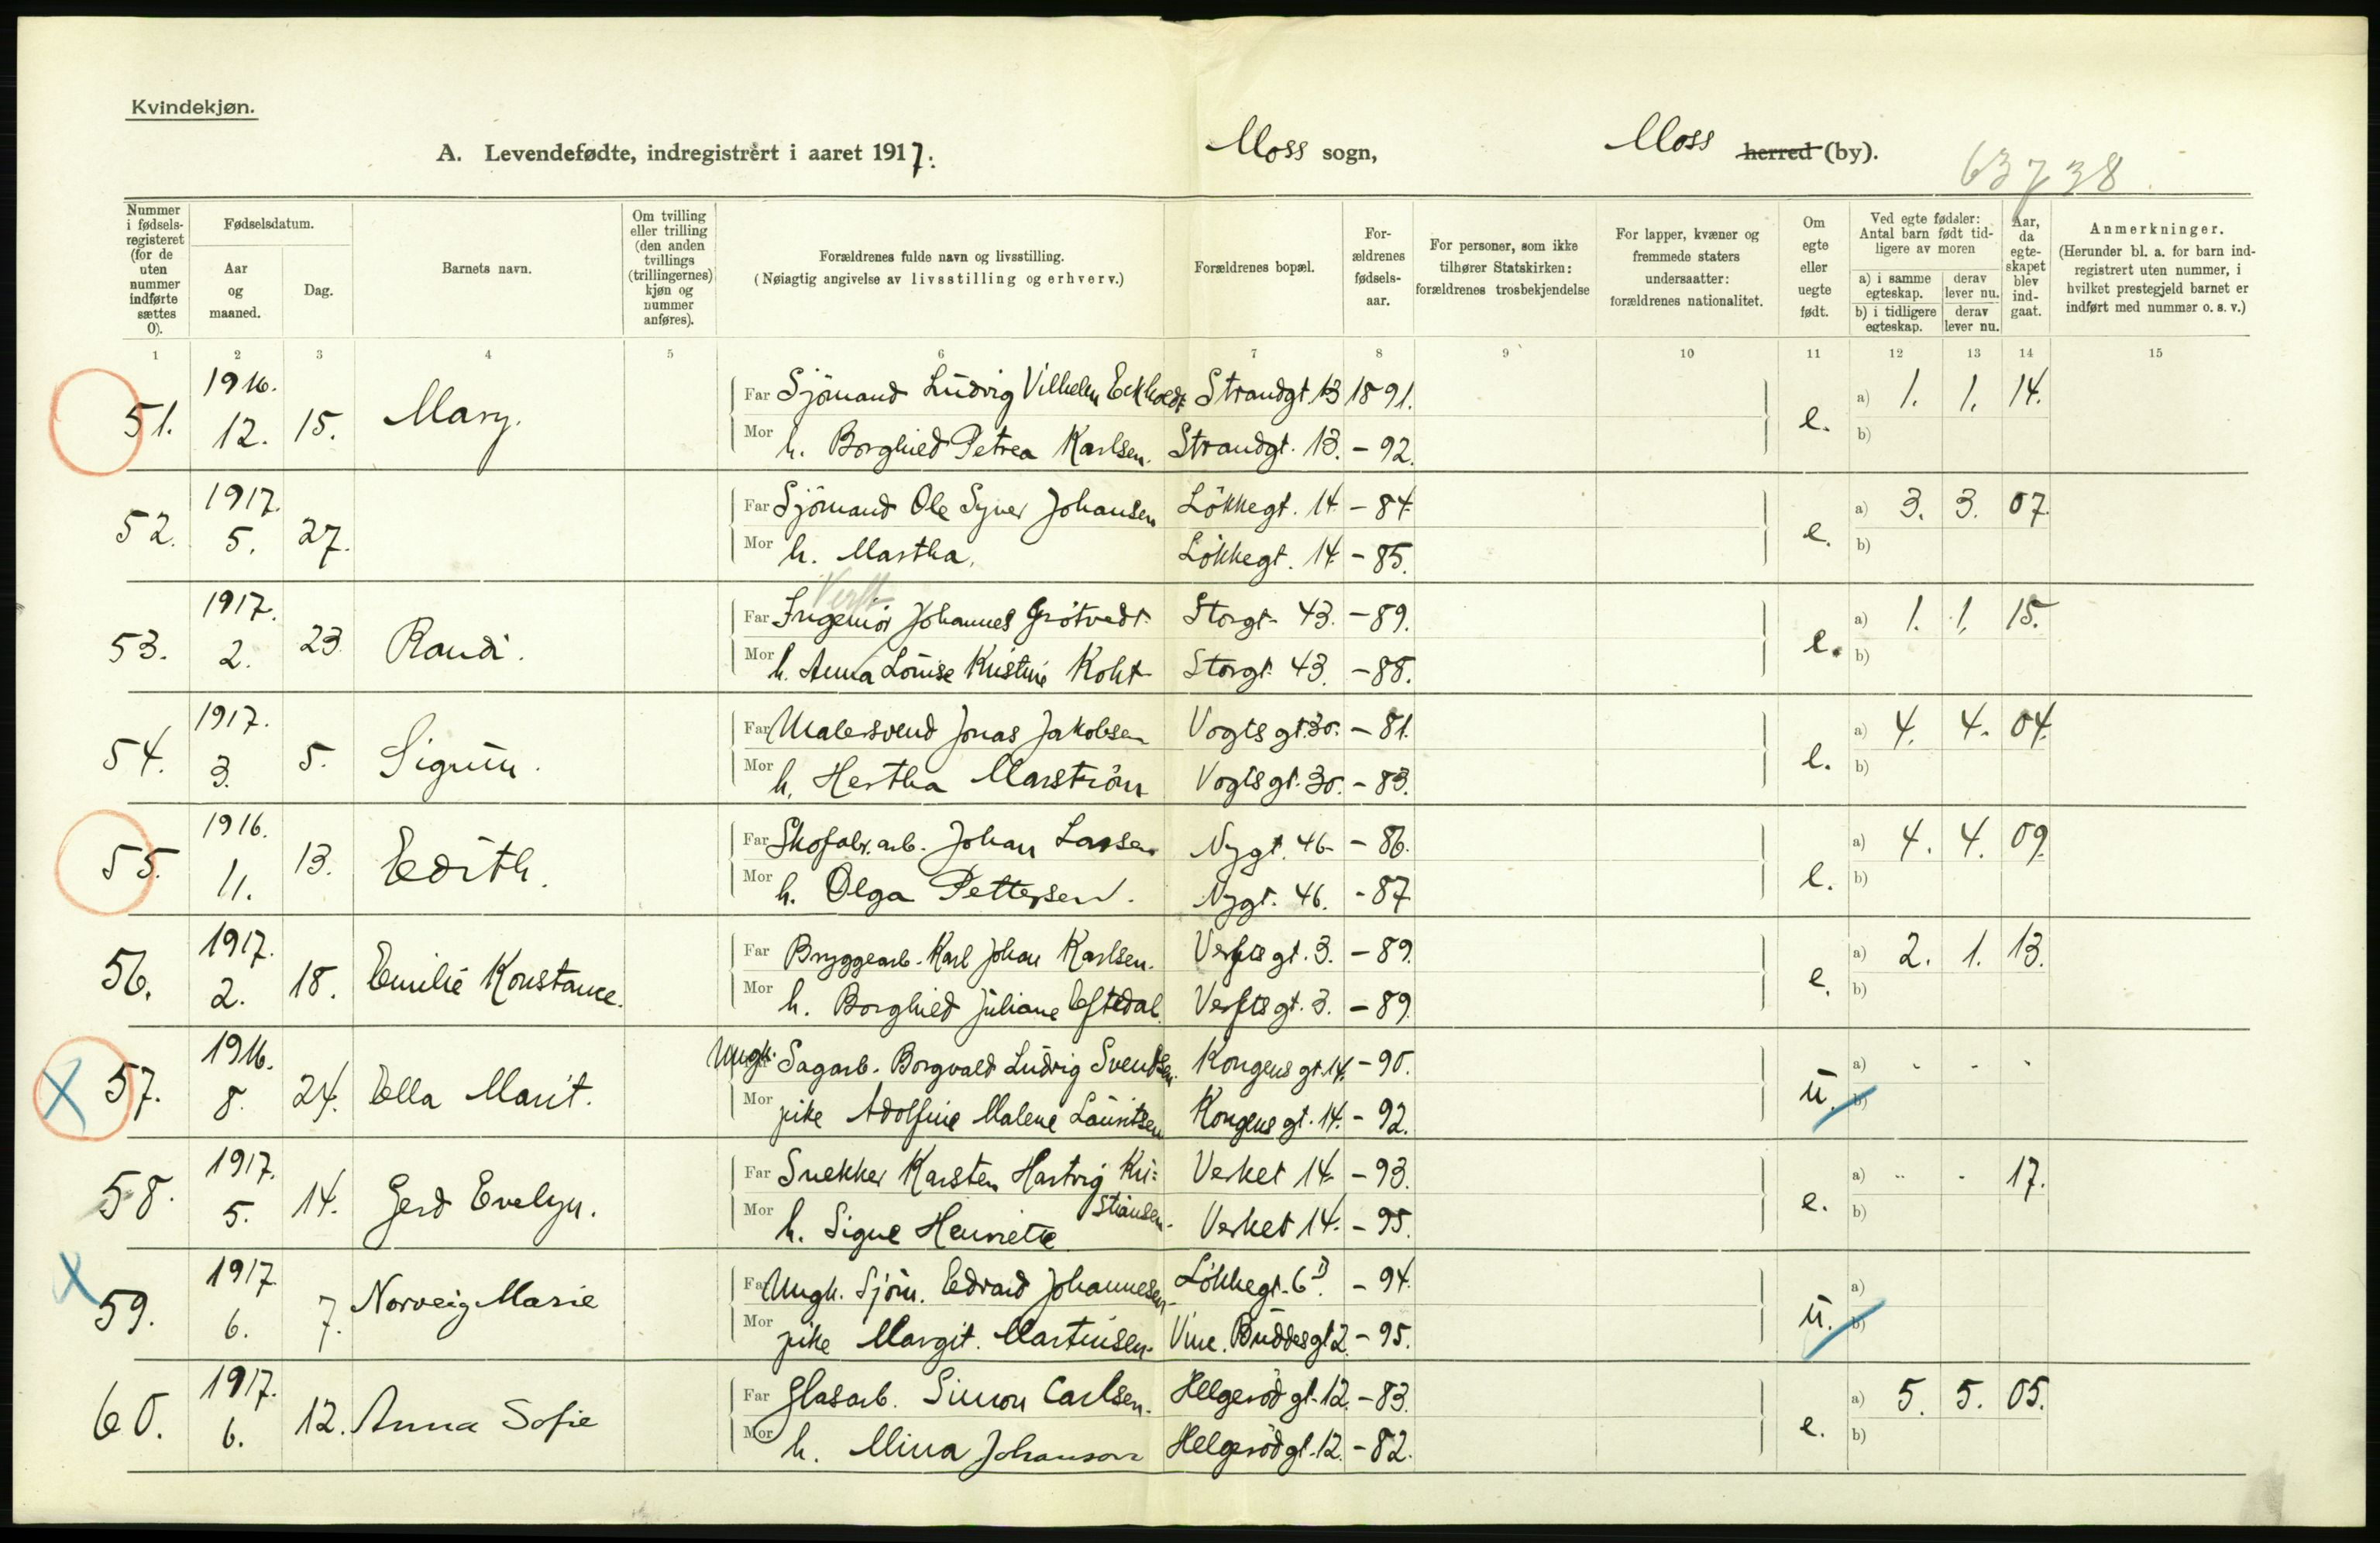 Kvindekjøn.
A. Levendefødte, indregistrert i aaret 1917. Moss sogn, Moss herred (by).
63738
Nummer i fødsels-registeret (for de uten nummer indførte sættes 0).
Fødselsdatum.
Aar og maaned.
Dag.
Barnets navn.
Om tvilling eller trilling (den anden tvillings (trillingernes) kjøn og nummer anføres).
Forældrenes fulde navn og livsstilling.
(Nøiagtig angivelse av livsstilling og erhverv.)
Forældrenes bopæl.
For-ældrenes fødsels-aar.
For personer, som ikke tilhører Statskirken: forældrenes trosbekjendelse
For lapper, kvæner og fremmede staters undersaatter: forældrenes nationalitet.
Om egte eller uegte født.
Ved egte fødsler: Antal barn født tid-ligere av moren
a) i samme egteskap. derav lever nu.
b) i tidligere egteskap. derav lever nu.
Aar, da egte-skapet blev ind-gaat.
Anmerkninger.
(Herunder bl. a. for barn ind-registrert uten nummer, i hvilket prestegjeld barnet er indført med nummer o. s. v.)
1 2 3 4 5 6 7 8 9 10 11 12 13 14 15
51. 1916. 12. 15. Mary. Far Sjömand Ludvig Vilhelm Eckholdt Strandgt. 13 1891. e. a) 1. 1. 14.
Mor h. Borghild Petrea Karlsen. Strandgt. 13. - 92. b)
52. 1917. 5. 27. Far Sjömand Ole Syver Johansen Lökkegt. 14 - 84. e. a) 3. 3. 07.
Mor h. Martha. Lökkegt. 14. - 85. b)
Verft
53. 1917. 2. 23. Randi. Far Ingeniör Johannes Grötvedt Storgt. 43. - 89. e. a) 1. 1. 15.
Mor h. Anna Louise Kristine Koht Storgt. 43. - 88. b)
54. 1917. 3. 5. Sigrun. Far Malersvend Jonas Jakobsen Vogtsgt. 30. - 81. e. a) 4. 4. 04.
Mor h. Hertha Marström Vogtsgt. 30. - 83. b)
55. 1916. 11. 13. Edith. Far Skofabr. arb. Johan Larsen Nygt. 46 - 86. e. a) 4. 4. 09.
Mor h. Olga Pettersen. Nygt. 46. - 87. b)
56. 1917. 2. 18. Emilie Konstance. Far Bryggearb. Karl Johan Karlsen. Verftsgt. 3. - 89. e. a) 2. 1. 13.
Mor h. Borghild Juliane Eftedal. Verftsgt. 3. - 89. b)
57. 1916. 8. 24. Ella Marit. Ungk. Sagarb. Borgvald Ludvig Svendsen. Kongens gt. 14. - 90. u. a) - - -
Mor pike Adolfine Malene Lauritsen Kongens gt. 14. - 92. b)
58. 1917. 5. 14. Gerd Evelyn. Far Snekker Karsten Hartvig Kri= Verket 14 - 93. e. a) - - 17.
stiansen.
Mor h. Signe Henriette Verket 14. - 95. b)
59. 1917 6. 7. Norveig Marie Far Ungk. Sjöm. Edvard Johannesen Lökkegt. 6 D. - 94. u. a)
Mor pike Margit Martinsen Vinc. Buddesgt 2. - 95. b)
60. 1917. 6. 12. Anna Sofie Far Glasarb. Simon Carlsen. Helgerödgt. 12. - 83. e. a) 5. 5. 05.
Mor h. Mina Johanson Helgerödgt. 12. - 82. b)